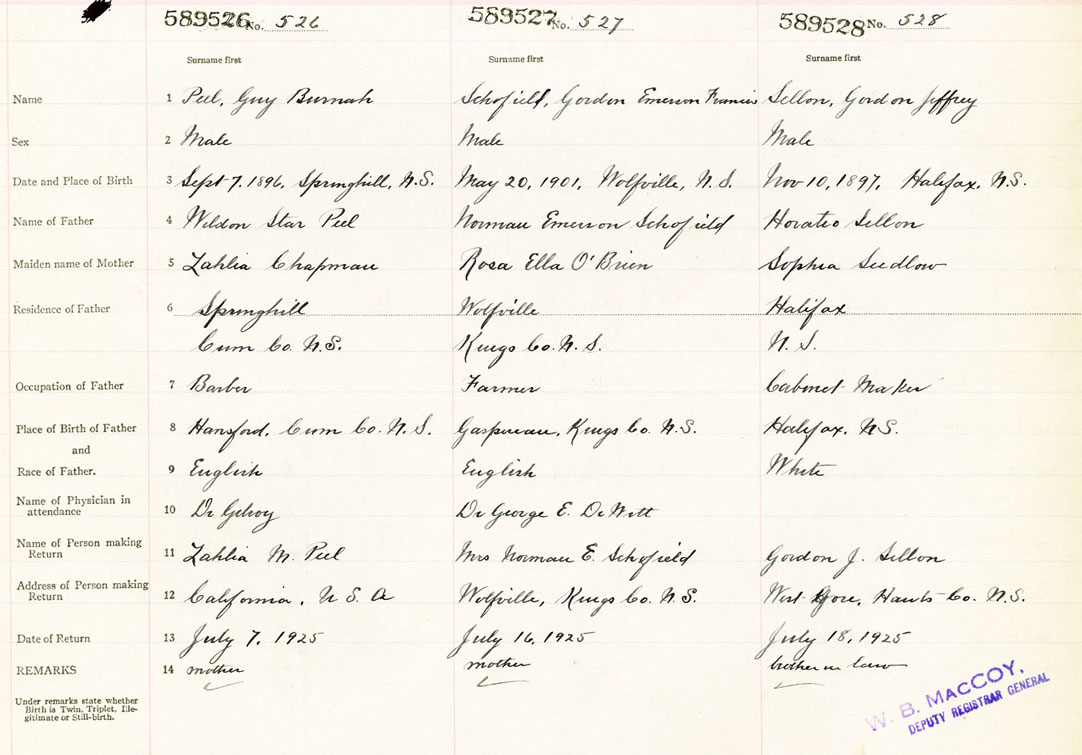 589526 No. 526 589527 No. 527 589528 No. 528
Surname first Surname first Surname first
Name 1 Peel, Guy Schofield, Gordon Emerson Francis Sellon, Gordon Jeffrey
Sex 2 Male Male Male
Date and Place of Birth 3 Sept 7, 1896, Springhill, N.S. May 20, 1901, Wolfville, N.S. Nov 10, 1897, Halifax, N.S.
Name of Father 4 Wildon Star Peel Norman Emerson Schofield Horatio Sellon
Maiden name of Mother 5 Zahlia Chapman Rosa Ella O'Brien Sophia
Residence of Father 6 Springhill Wolfville Halifax
Cum Co. N.S. Kings Co. N.S. N.S.
Occupation of Father 7 Barber Farmer Cabinet Maker
Place of Birth of Father 8 Hansford, Cum Co. N.S. Gaspereau, Kings Co. N.S. Halifax, N.S.
and
Race of Father. 9 English English White
Name of Physician in
attendance 10 Dr Gilroy Dr George E. DeWitt
Name of Person making
Return 11 Zahlia M. Peel Mrs Norman E. Schofield Gordon J. Sellon
Address of Person making
Return 12 California, U S A Wolfville, Kings Co. N.S. West Gore, Hants Co. N.S.
Date of Return 13 July 7, 1925 July 16, 1925 July 18, 1925
REMARKS 14 mother mother brother in law
Under remarks state whether
Birth is Twin, Triplet, Ille-
gitimate or Still-birth.
W. B. MACCOY,
DEPUTY REGISTRAR GENERAL